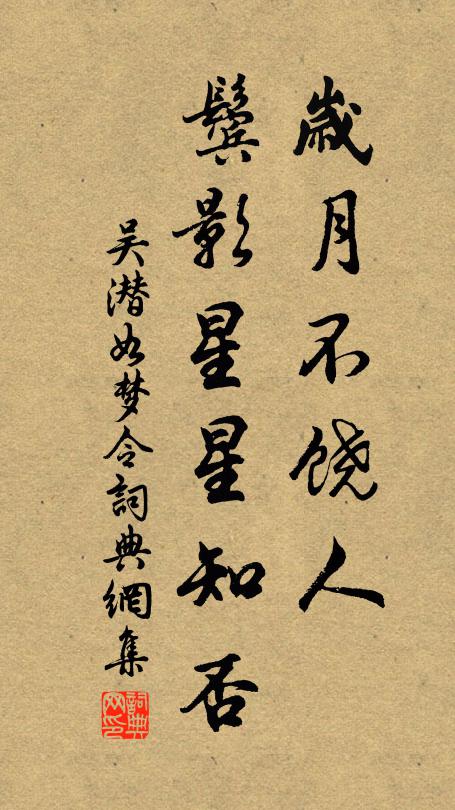 歲月不饒人
鬢影星星知否
吴潜如梦令詞典網集
詞典网印